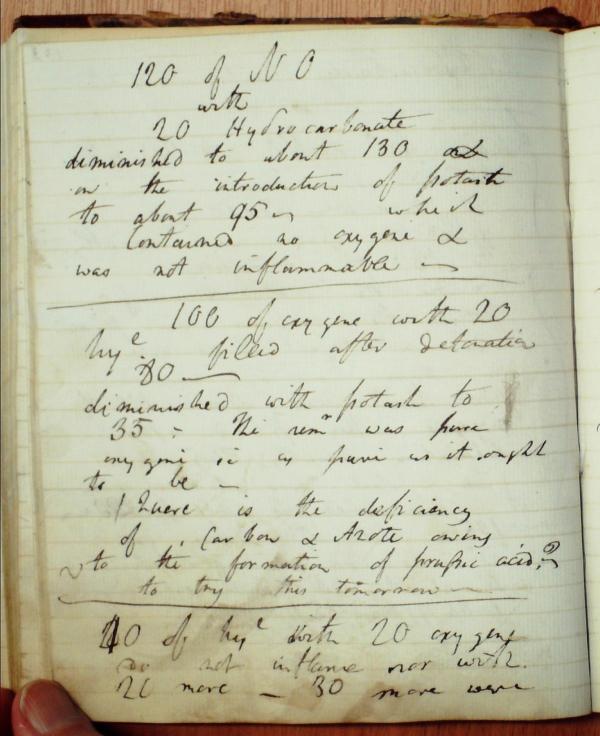 120 of N O
with
20 Hydrocarbonate
diminished to about 130
on the introduction of potash
to about 95 — which
Contained no oxygene &
was not inflammable —
100 of oxygene with 20
hye filled after detonation
80 —
diminished with potash to
35 - The remr was pure
oxygene ie as pure as it ought
to be —
Quere is the deficiency
of Carbon & Azote owing
to the formation of prussic acid?
to try this tomorrow —
40 of hye with 20 oxygene
do not inflame nor with
20 more — 30 more were